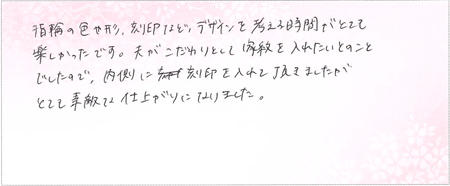 指輪の色や形、刻印など、デザインを考える時間がとても
楽しかったです。夫がこだわりとして家紋を入れたいとのこと
でしたので、内側に刻印を入れて頂きましたが
とても素敵な仕上がりになりました。